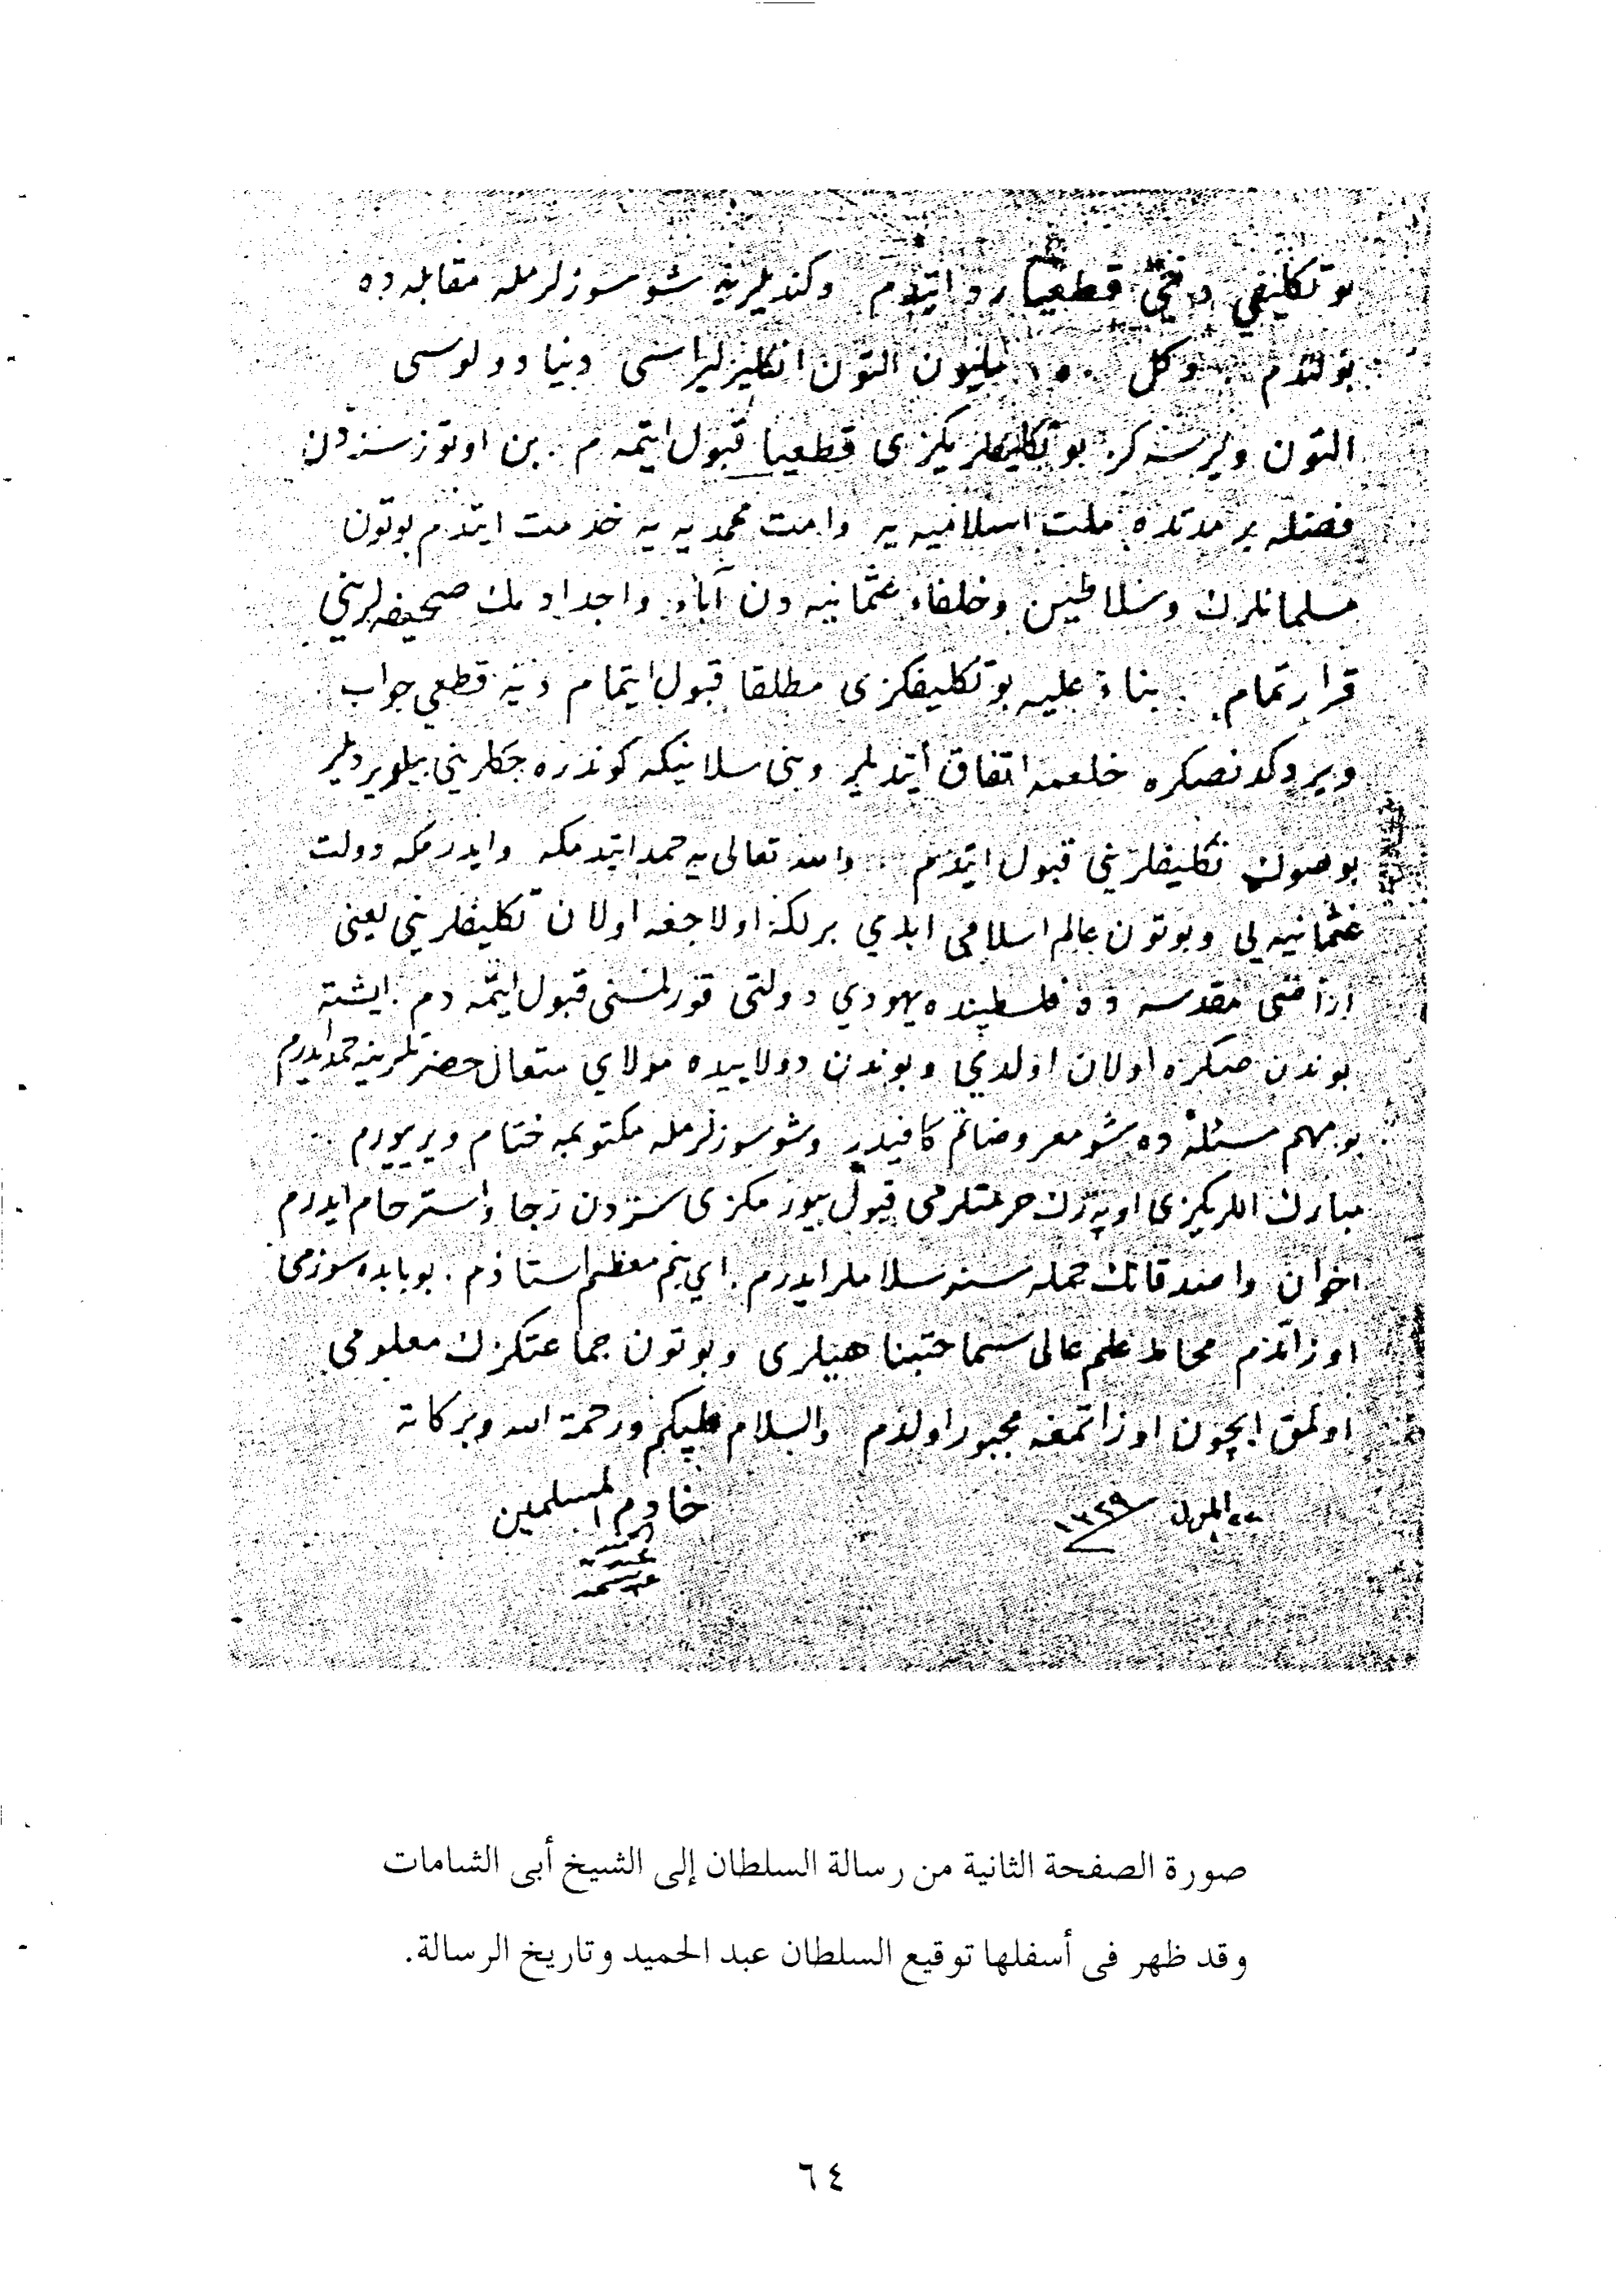 بو تكليفي دخي قطعيا رد ايتدم وكنديلرينه شو سوزلرمله مقابله ده
بولندم دكل ١٥٠ مليون التون انكليز ليراسني دنيا دولوسي
التون ويرسه كز بو تكليفلريكزى قطعيا قبول ايتمه م . بن اوتوز سنه دن
فضله بر مدتده ملت اسلاميه يه وامت محمديه يه خدمت ايتدم بوتون
مسلمانلرك وسلاطين وخلفاء عثمانيه دن آباء واجدادمك صحيفه لريني
قرارتمام . بناء عليه بو تكليفكزى مطلقا قبول ايتمام ديه قطعي جواب
ويردكدنصكره خلعمده اتفاق ايتديلر وبني سلانيكه كوندره جكلريني بيلديرديلر
بو صوك تكليفلريني قبول ايتدم . والله تعالى يه حمد ايتدمكه وايدرمكه دولت
عثمانيه يي وبوتون عالم اسلامي ابدي بر لكه اولاجغه اولان تكليفلريني يعني
اراضئ مقدسه ده فلسطينده يهودي دولتي قورلمسني قبول ايتمه دم . ايشته
بوندن صكره اولان اولدي وبوندن دولاييده مولاي متعال حضرتلرينه حمد ايدرم
بو مهم مسئله ده شو معروضاتم كافيدر وشو سوزلرمله مكتوبمه ختام ويرييورم ..
مبارك اللريكزى اوپه رك حرمتلرمي قبول بيورمكزى سزدن رجا واسترحام ايدرم
اخوان واصدقانك جمله سنه سلاملر ايدرم . اي بنم معظم استاذم . بو بابده سوزمي
اوزاتدم محاط علم عالى سماحتبناهيلرى وبوتون جماعتكزك معلومي
اولمق ايچون اوزاتمغه مجبور اولدم والسلام عليكم ورحمة الله وبركاته
ايلول ١٣٢٩
خادم المسلمين
صورة الصفحة الثانية من رسالة السلطان إلى الشيخ أبى الشامات
وقد ظهر فى أسفلها توقيع السلطان عبد الحميد وتاريخ الرسالة.
٦٤